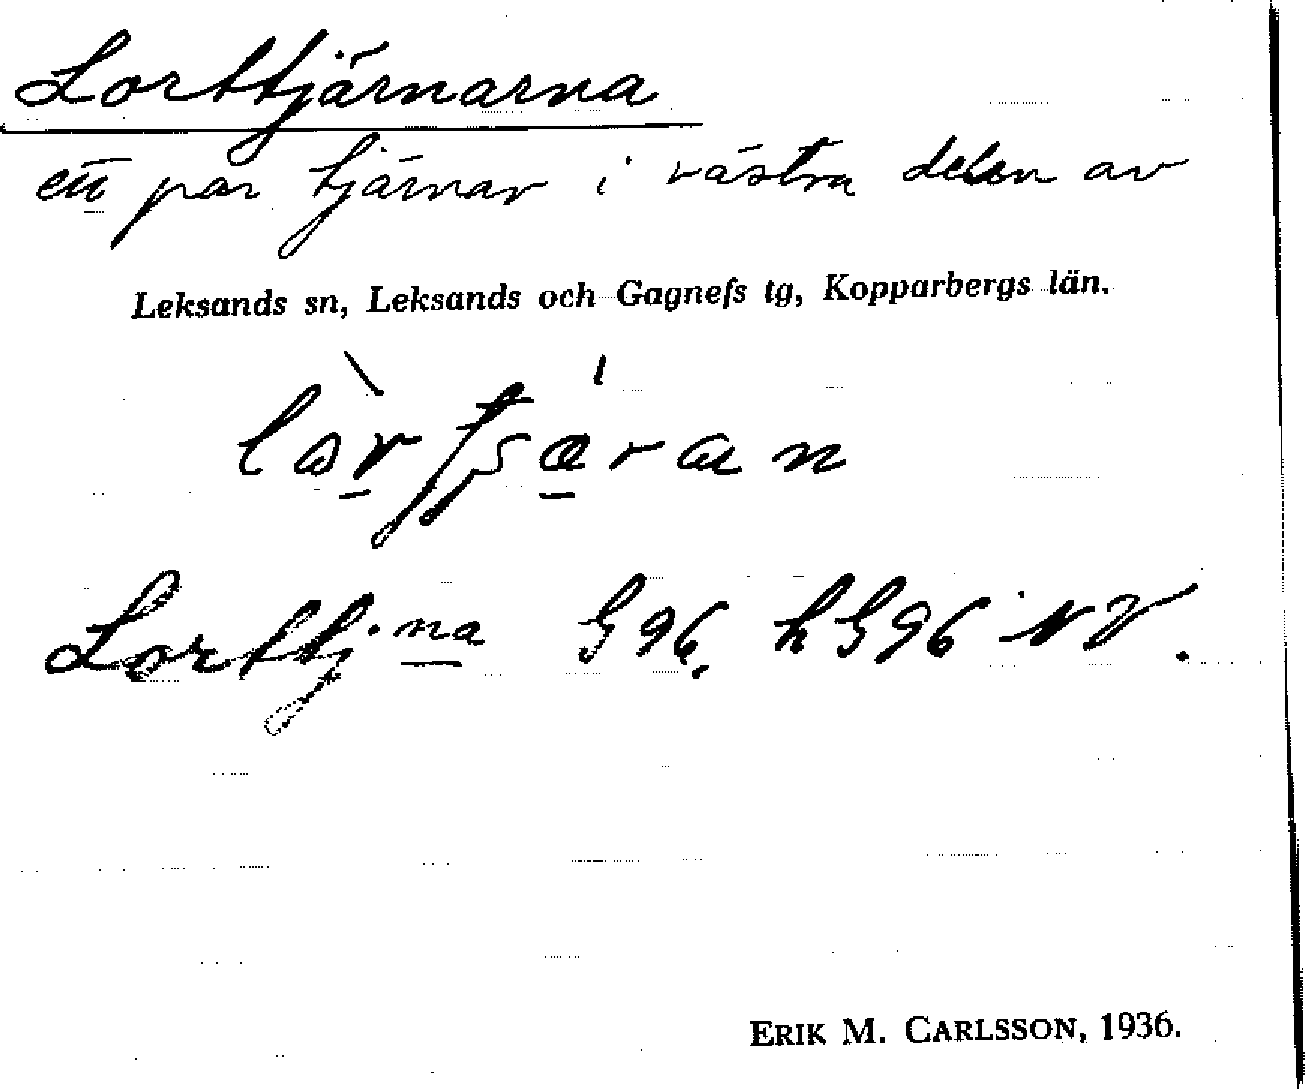 Lorttjärnarna
ett par tjärnar i västra delen av
Leksands sn, Leksands och Gagnefs tg, Kopparbergs län.
Lorttj:na G 96, h G 96 NV.
ERIK M. CARLSSON, 1936.